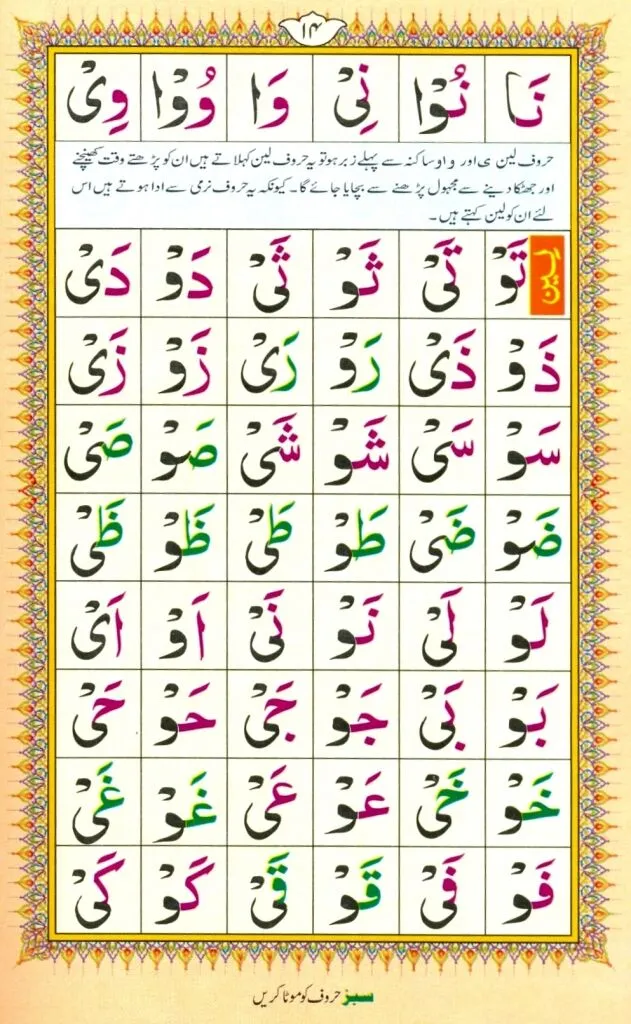 ۱۴
نَا نُوْا نِیْ وَا وُوْا وِیْ
حروف لین ی اور و اوساکنہ سے پہلے زبر ہو تو یہ حروف لین کہلاتے ہیں ان کو پڑھتے وقت کھینچنے
اور جھٹکا دینے سے مجہول پڑھنے سے بچایا جائے گا۔ کیونکہ یہ حروف نرمی سے ادا ہوتے ہیں اس
لئے ان کو لین کہتے ہیں۔
لین تَوْ تَیْ ثَوْ ثَیْ دَوْ دَیْ
ذَوْ ذَیْ رَوْ رَیْ زَوْ زَیْ
سَوْ سَیْ شَوْ شَیْ صَوْ صَیْ
ضَوْ ضَیْ طَوْ طَیْ ظَوْ ظَیْ
لَوْ لَیْ نَوْ نَیْ اَوْ اَیْ
بَوْ بَیْ جَوْ جَیْ حَوْ حَیْ
خَوْ خَیْ عَوْ عَیْ غَوْ غَیْ
فَوْ فَیْ قَوْ قَیْ كَوْ كَیْ
سبز حروف کو موٹا کریں